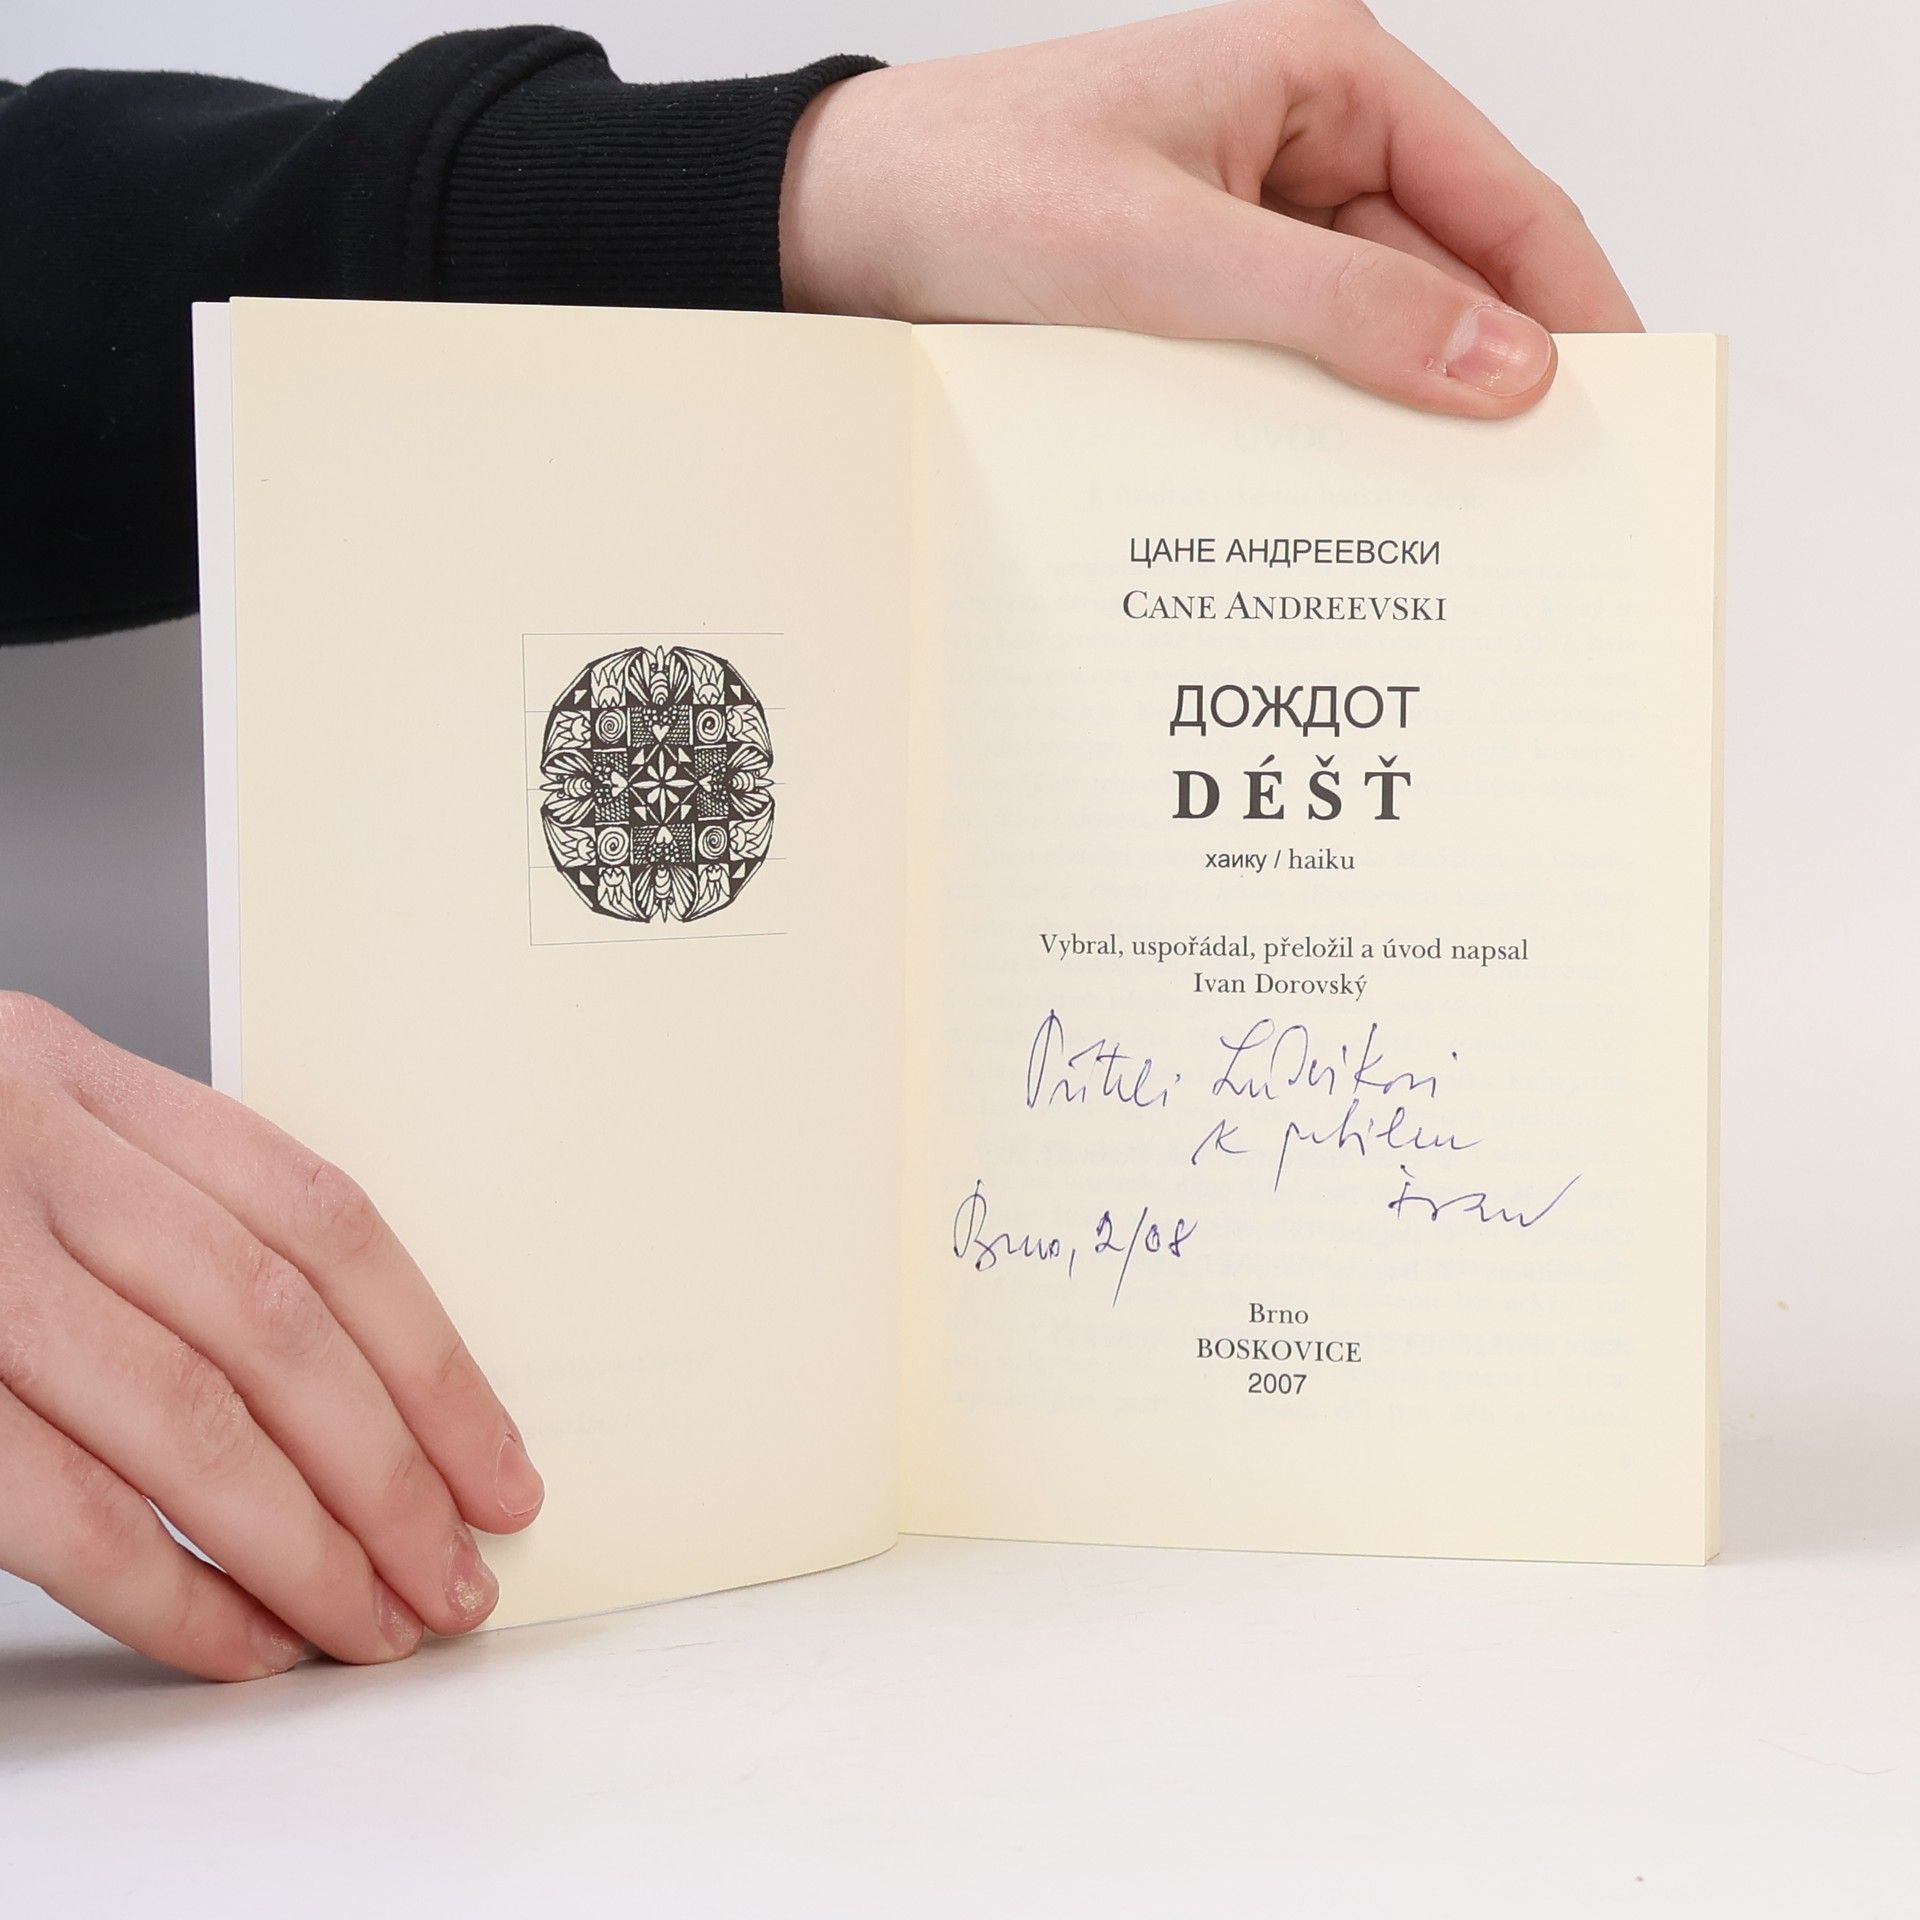 ЦАНЕ АНДРЕЕВСКИ
CANE ANDREEVSKI
ДОЖДОТ
DÉŠŤ
хаику / haiku
Vybral, uspořádal, přeložil a úvod napsal
Ivan Dorovský
Příteli Luďkovi
k jubileu
Ivan
Brno, 2/08
Brno
BOSKOVICE
2007